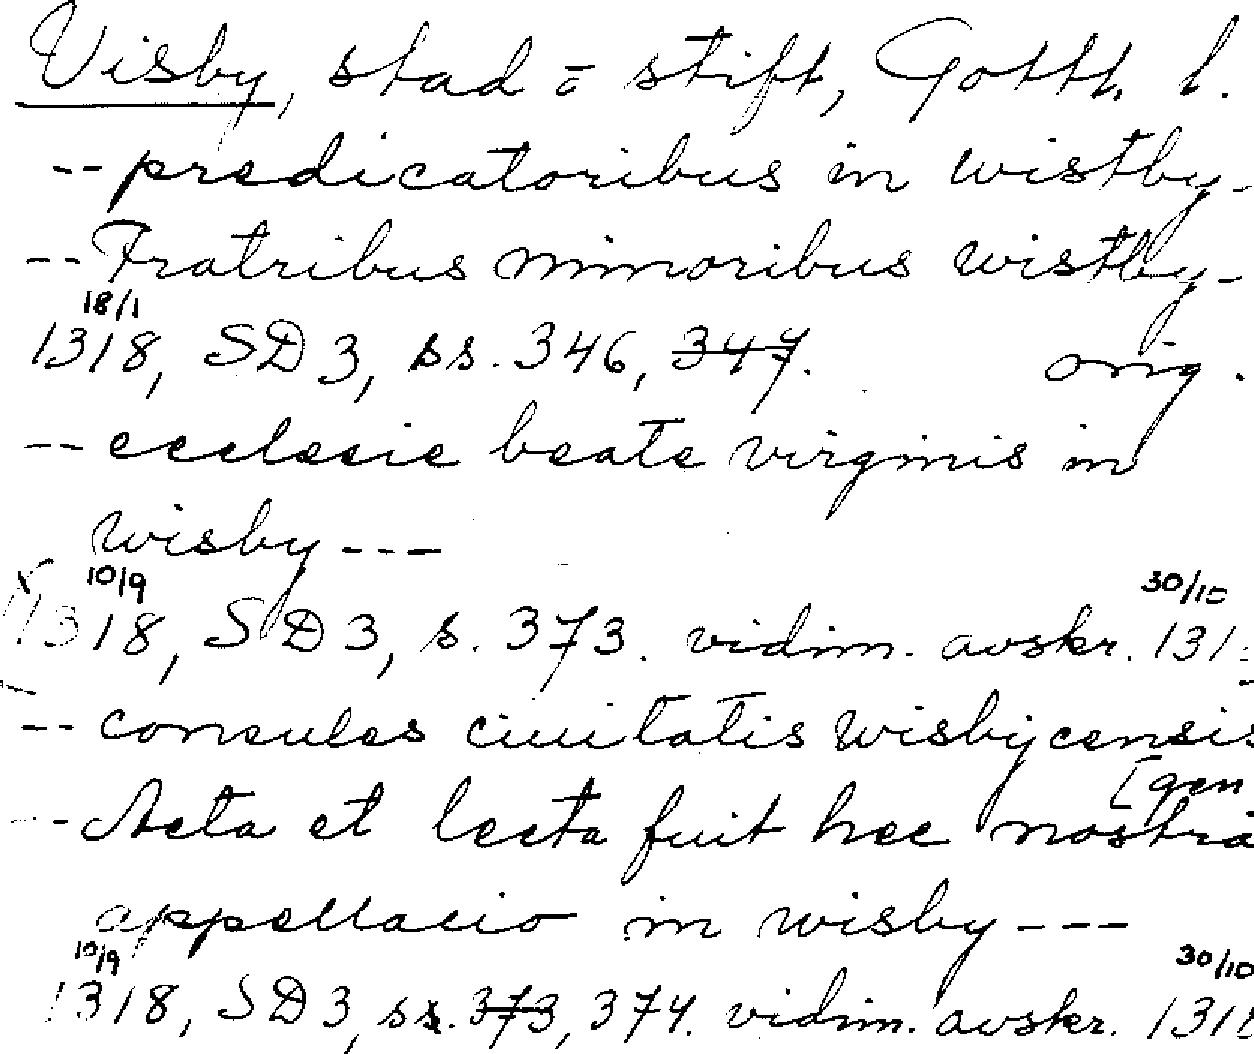 Visby, stad o stift, Gottl. l.
-- predicatoribus in wistby -
-- Fratribus minoribus wistby -
18/1
1318, SD 3, ss. 346, 347. orig.
-- ecclesie beate virginis in
wisby ---
10/9 30/10
1318, SD 3, s. 373. vidim. avskr. 131
-- consules ciuitatis wisbycensis
[gen
-- Acta et lecta fuit hec nostra
appellacio in wisby ---
10/9 30/10
1318, SD 3, ss. 373, 374. vidim. avskr. 1318